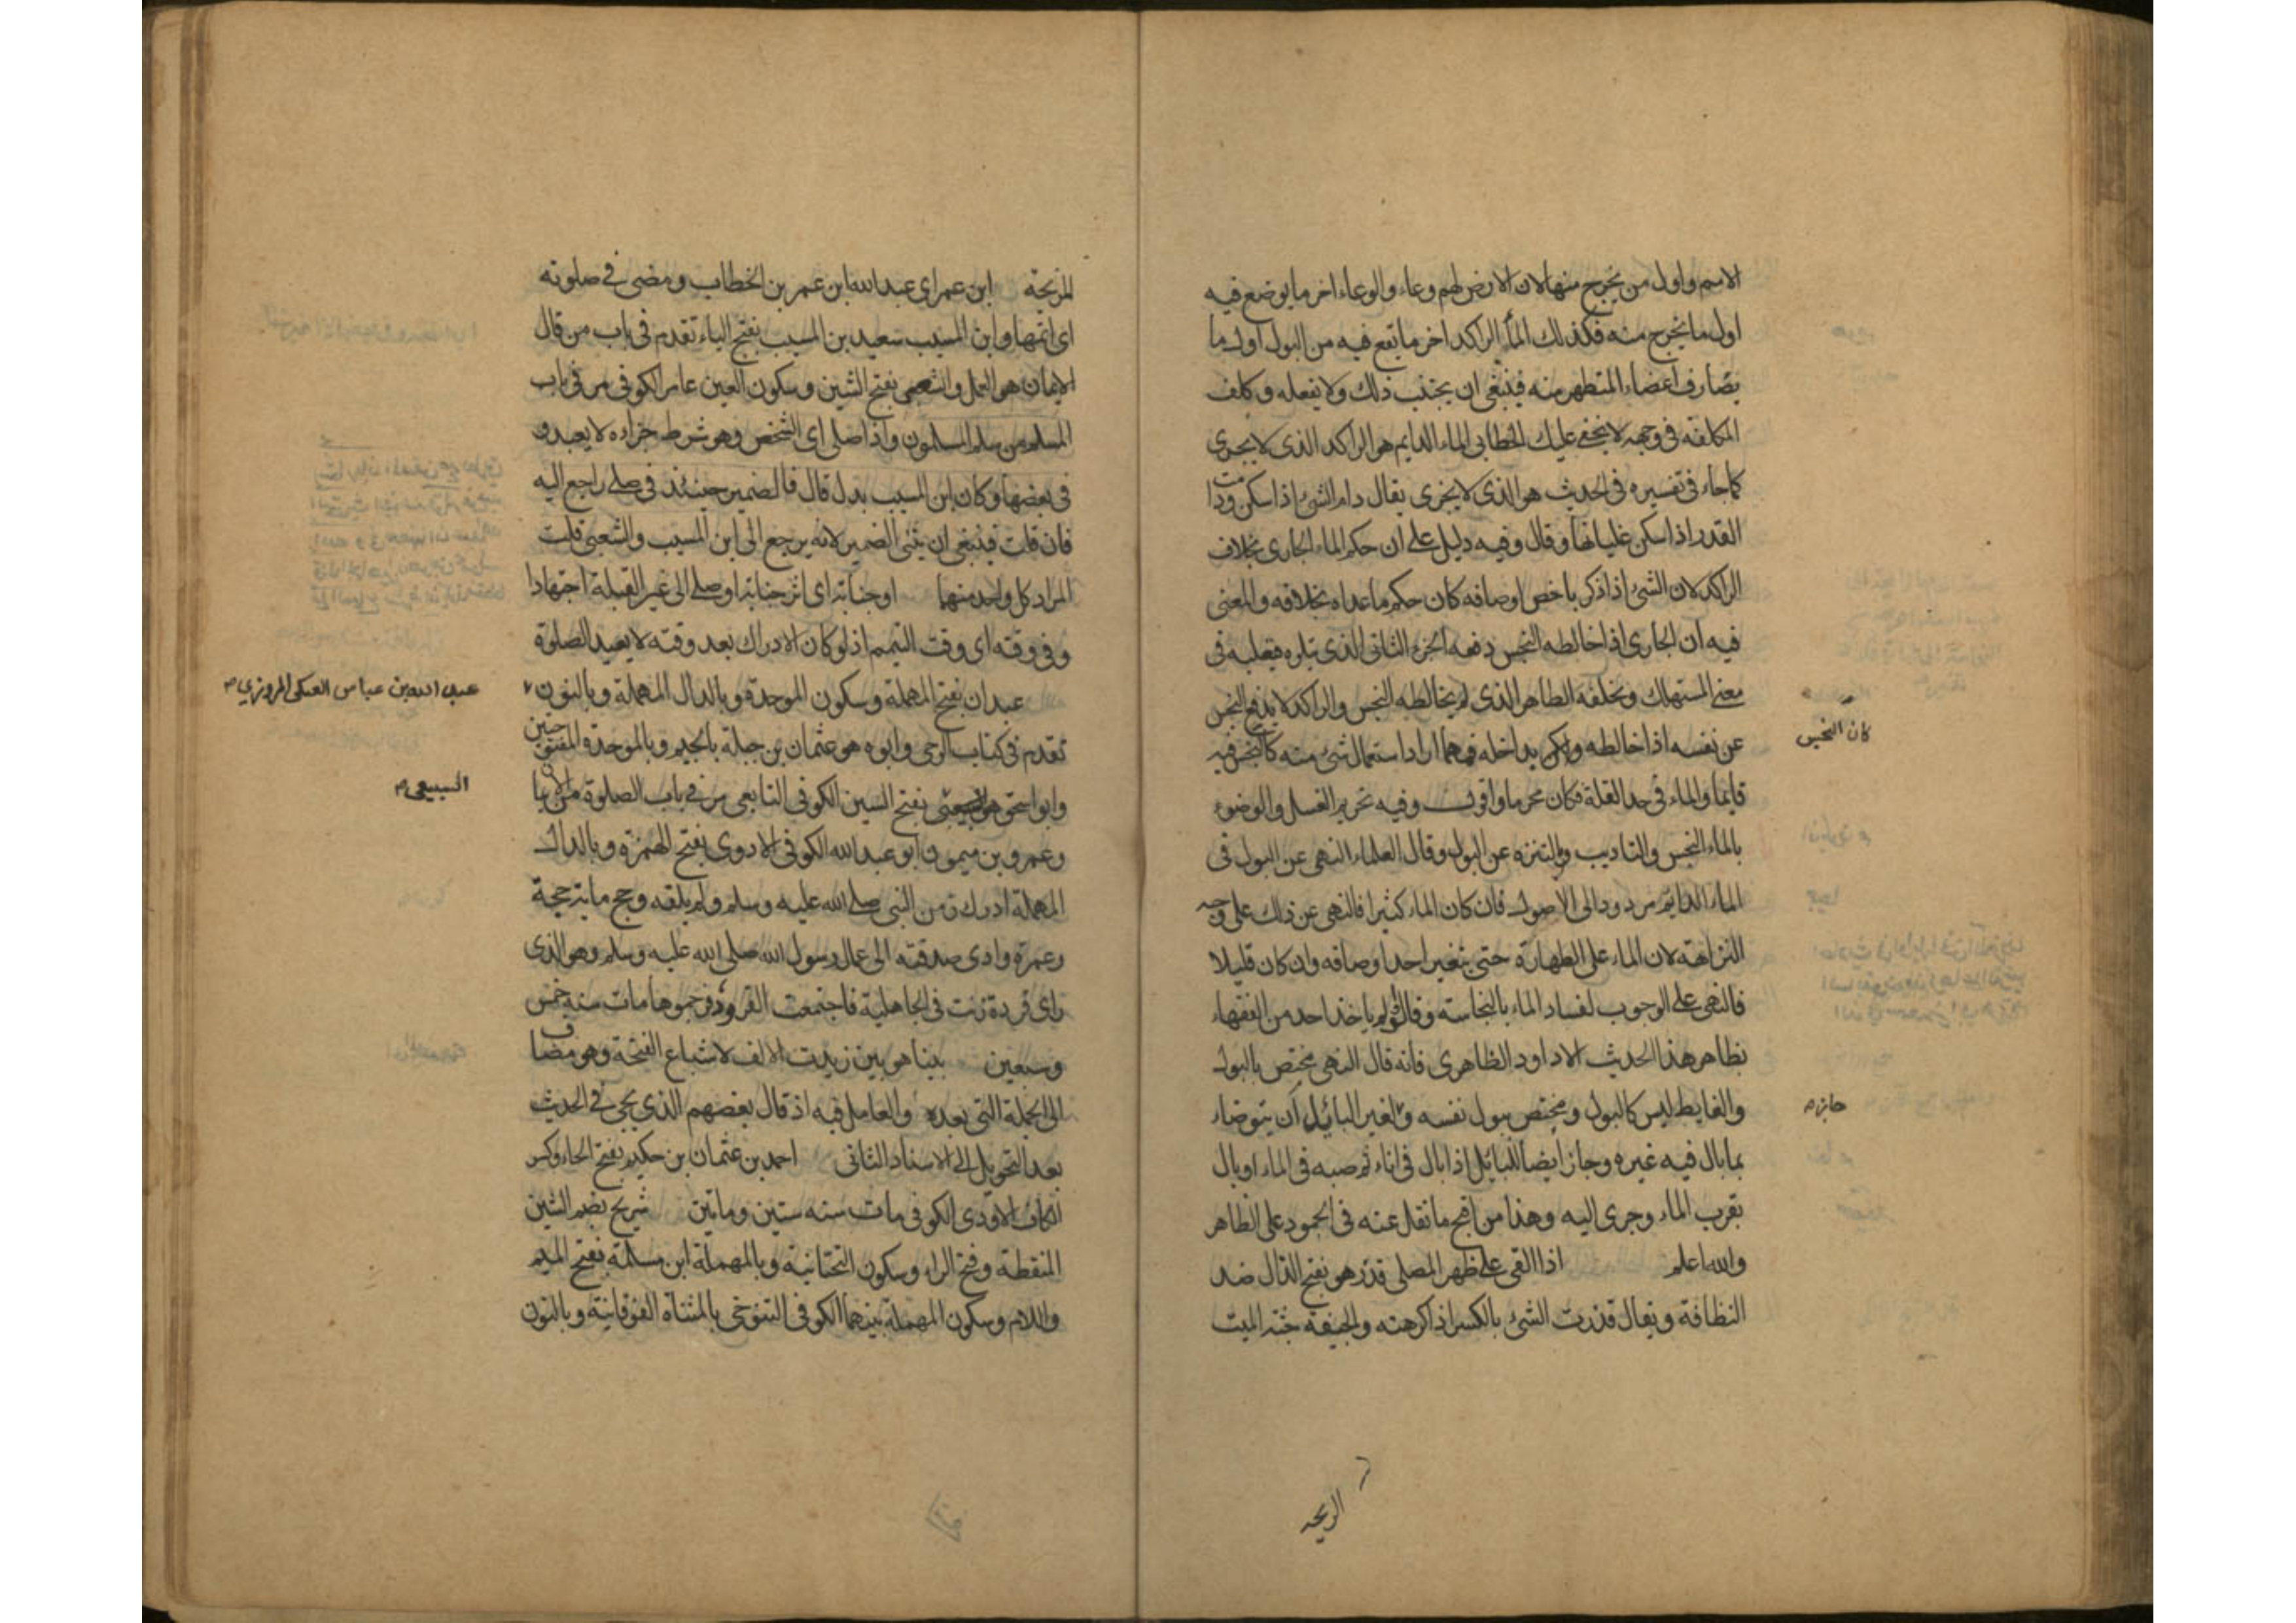 الاسم واول من يخرج منها لان الارض لهم وعاء والوعاء اخر ما يوضع فيه
اول ما يخرج منه فكذلك الماء الراكد اخر ما يقع فيه من البول اول ما
يصادف اعضاء المتطهر منه فينبغى ان يجتنب ذلك ولا يفعله وكلف
المكلفه فى وجهه لا يخفى عليك الخطابى الماء الدايم هو الراكد الذى لا يجرى
كما جاء فى تفسيره فى الحديث هو الذى لا يجرى يقال دام الشئ اذا سكن ودامت
القدر اذا سكن غليانها وقال وفيه دليل على ان حكم الماء الجارى بخلاف
الراكد لان الشئ اذا ذكر باخص اوصافه كان حكم ما عداه بخلافه والمعنى
فيه ان الجارى اذا خالطه النجس دفعه الجزء الثانى الذى يتلوه فيغلبه فى
معنى المستهلك ويخلفه الطاهر الذى لم يخالطه النجس والراكد لا يدفع النجس
عن نفسه اذا خالطه ولكن يداخله فمهما اراد استعمال شئ منه كان النجس فيه
كان النجس
قايما والماء فى حد القلة فكان محرما واقول وفيه تحريم الغسل والوضوء
بالماء النجس والتاديب بالتنزه عن البول وقال العلماء النهى عن البول فى
الماء الدايم مردود الى الاصول فان كان الماء كثيرا فالنهى عن ذلك على وجه
النزاهة لان الماء على الطهارة حتى يتغير احد اوصافه وان كان قليلا
فالنهى على الوجوب لفساد الماء بالنجاسة وقالوا لم ياخذ احد من الفقهاء
بظاهر هذا الحديث الا داود الظاهرى فانه قال النهى مختص بالبول
والغايط ليس كالبول ومختص ببول نفسه ولغير البائل ان يتوضاء
جايز
بما بال فيه غيره وجاز ايضا للبائل اذا بال فى اناء ثم صبه فى الماء او بال
بقرب الماء وجرى اليه وهذا من اقبح ما نقل عنه فى الجمود على الظاهر
والله اعلم اذا القى على ظهر المصلى قذر هو بفتح الذال ضد
النظافة ويقال قذرت الشئ بالكسر اذا كرهته والجيفة جثة الميت
المريحة
المريحة ابن عمر اي عبد الله ابن عمر بن الخطاب ومضى فى صلوته
اى اتمها وابن المسيب سعيد بن المسيب بفتح الياء تقدم فى باب من قال
الايمان هو العمل والشعبى بفتح الشين وسكون العين عامر الكوفى مر فى باب
المسلم من سلم المسلمون واذا صلى اى الشخص وهو شرط جزاءه لا يعيد و
فى بعضها وكان ابن المسيب بدل قال فالضمير حينئذ فى صلى راجع اليه
فان قلت فينبغى ان يثنى الضمير لانه يرجع الى ابن المسيب والشعبى قلت
المراد كل واحد منهما او جنابة اى اثر جنابة او صلى الى غير القبلة اجتهادا
وفى وقته اى وقت التيمم اذ لو كان الادراك بعد وقته لا يعيد الصلوة
عبدان بفتح المهملة وسكون الموحدة وبالدال المهملة وبالنون
عبد الله بن عباس العتكى المروزي
تقدم فى كتاب الوحى وابوه هو عثمان بن جبلة بالجيم وبالموحدة المفتوحتين
وابو اسحق هو السبيعى بفتح السين الكوفى التابعى مر فى باب الصلوة من الايمان
السبيعى
وعمرو بن ميمون ابو عبد الله الكوفى الاودى بفتح الهمزة وبالدال
المهملة ادرك زمن النبى صلى الله عليه وسلم ولم يلقه وحج ماية حجة
وعمرة وادى صدقته الى عمال رسول الله صلى الله عليه وسلم وهو الذى
راى قردة زنت فى الجاهلية فاجتمعت القرود فرجموها مات سنه خمس
وسبعين بينا هو بين زيدت الالف لاشباع الفتحة وهو مضاف
الى الجملة التى بعده والعامل فيه اذ قال بعضهم الذى يجئ فى الحديث
بعد التحويل الى الاسناد الثانى احمد بن عثمان بن حكيم بفتح الحاء وكسر
الكاف الاودى الكوفى مات سنه ستين ومأتين شريح بضم الشين
المنقطة وفتح الراء وسكون التحتانية وبالمهملة ابن مسلمة بفتح الميم
واللام وسكون المهملة بينهما الكوفى التنوخى بالمثناة الفوقانية وبالنون